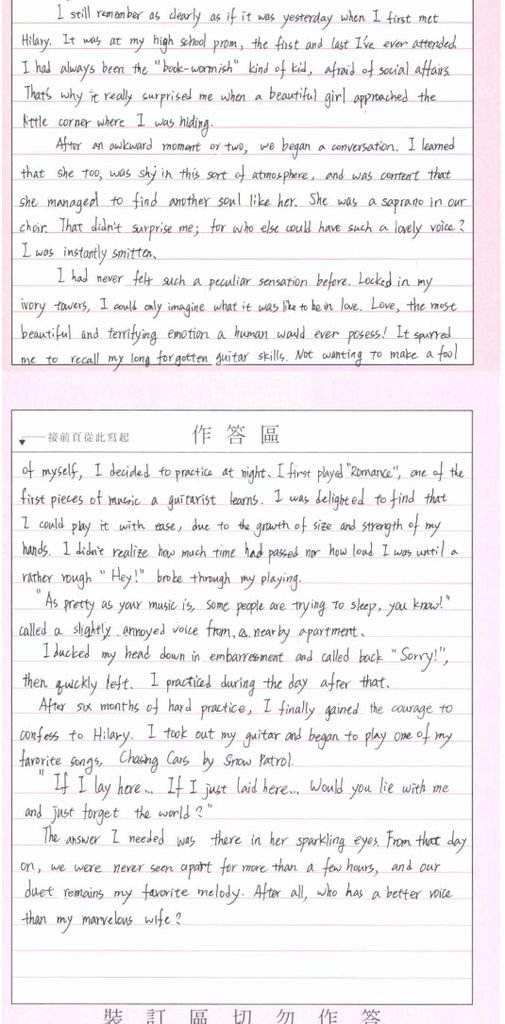 I still remember as clearly as if it was yesterday when I first met
Hilary. It was at my high school prom, the first and last I've ever attended.
I had always been the "book-wormish" kind of kid, afraid of social affairs.
That's why it really surprised me when a beautiful girl approached the
little corner where I was hiding.
After an awkward moment or two, we began a conversation. I learned
that she too, was shy in this sort of atmosphere, and was content that
she managed to find another soul like her. She was a soprano in our
choir. That didn't surprise me; for who else could have such a lovely voice?
I was instantly smitten.
I had never felt such a peculiar sensation before. Locked in my
ivory towers, I could only imagine what it was like to be in love. Love, the most
beautiful and terrifying emotion a human would ever posess! It spurred
me to recall my long forgotten guitar skills. Not wanting to make a fool
接前頁從此寫起 作答區
of myself, I decided to practice at night. I first played "Romance", one of the
first pieces of music a guitarist learns. I was delighted to find that
I could play it with ease, due to the growth of size and strength of my
hands. I didn't realize how much time had passed nor how loud I was until a
rather rough "Hey!" broke through my playing.
"As pretty as your music is, some people are trying to sleep, you know!"
called a slightly annoyed voice from a nearby apartment.
I ducked my head down in embarresment and called back "Sorry!",
then quickly left. I practiced during the day after that.
After six months of hard practice, I finally gained the courage to
confess to Hilary. I took out my guitar and began to play one of my
favorite songs, Chasing Cars by Snow Patrol.
"If I lay here... If I just laid here... Would you lie with me
and just forget the world?"
The answer I needed was there in her sparkling eyes. From that day
on, we were never seen apart for more than a few hours, and our
duet remains my favorite melody. After all, who has a better voice
than my marvelous wife?
裝訂區切勿作答